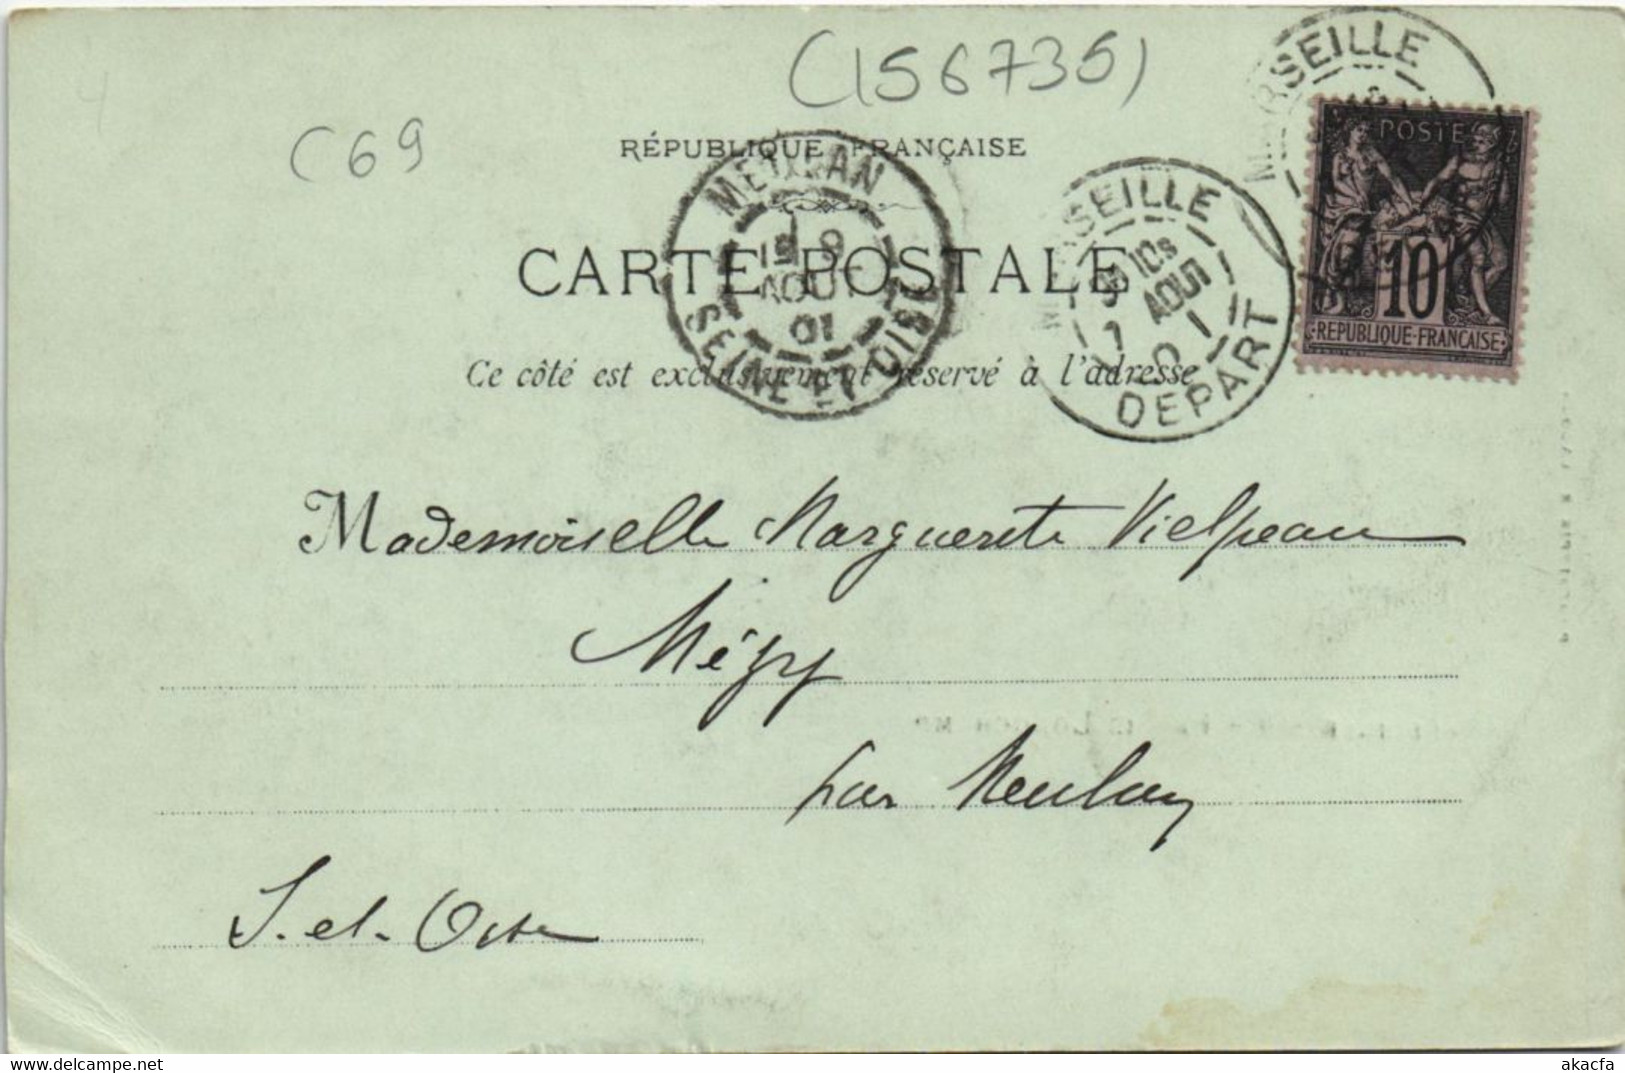 (156735)
C69
RÉPUBLIQUE FRANÇAISE
CARTE POSTALE
Ce côté est exclusivement réservé à l'adresse
MARSEILLE
MARSEILLE
AOUT
DEPART
AOUT
01
SEINE ET OISE
POSTE
10
REPUBLIQUE-FRANCAISE
Mademoiselle Marguerite Vielpeau
Mézy
par Meulan
S.-et-Oise
akacfa